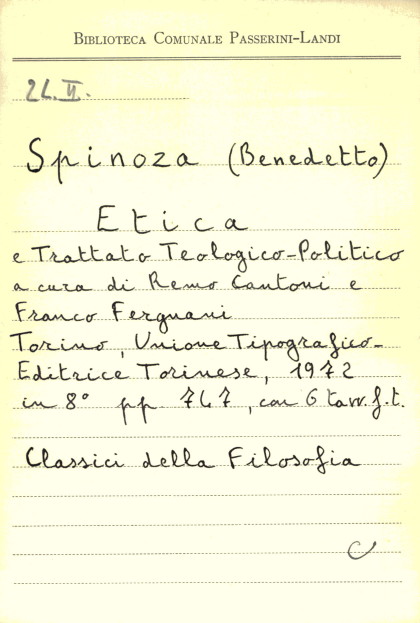 BIBLIOTECA COMUNALE PASSERINI-LANDI
2L. II.
Spinoza (Benedetto)
Etica
e Trattato Teologico-Politico
a cura di Remo Cantoni e
Franco Fergnani
Torino, Unione Tipografico-
Editrice Torinese, 1972
in 8° pp 767, con 6 tavv. f.t.
Classici della Filosofia
C